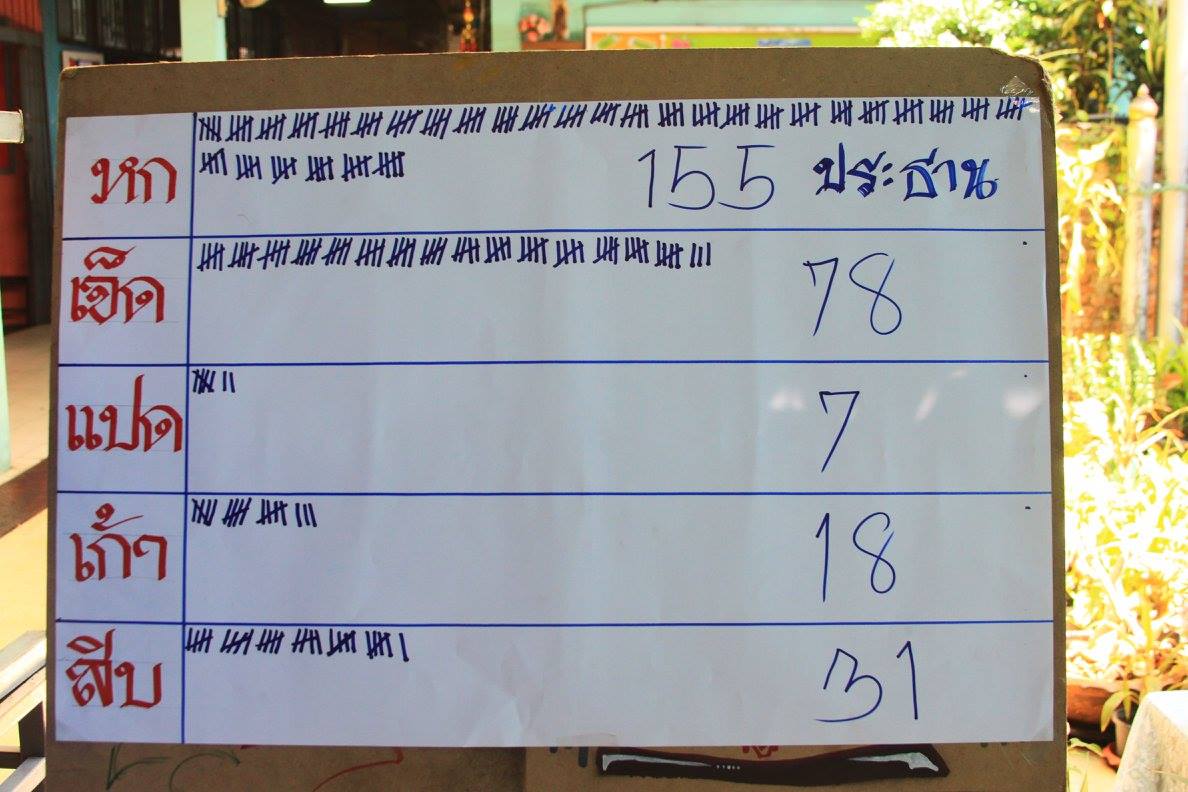 หก
155 ประธาน
เจ็ด
78
แปด
7
เก้า
18
สิบ
31